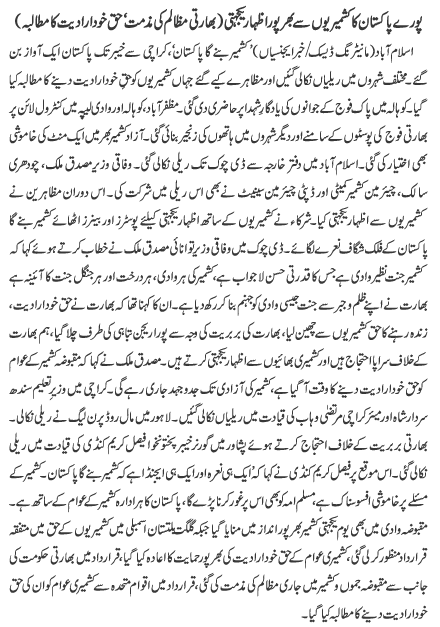 پورے پاکستان کا کشمیریوں سے بھرپور اظہار یکجہتی (بھارتی مظالم کی مذمت‘ حق خودارادیت کا مطالبہ)
اسلام آباد‘ (مانیٹرنگ ڈیسک/ خبر ایجنسیاں) ’کشمیر بنے گا پاکستان‘، کراچی سے خیبر تک پاکستان ایک آواز بن
گئے۔ مختلف شہروں میں ریلیاں نکالی گئیں اور مظاہرے کیے گئے جہاں کشمیریوں کو حق خودارادیت دینے کا مطالبہ کیا
گیا۔ کوہالہ میں پاک فوج کے جوانوں کی یادگار شہدا پر حاضری دی گئی۔ مظفرآباد، کوہالہ اور وادی لیپہ میں کنٹرول لائن پر
بھارتی فوج کی پوسٹوں کے سامنے اور دیگر شہروں میں ہاتھوں کی زنجیر بنائی گئی۔ آزاد کشمیر بھر میں ایک منٹ کی خاموشی
بھی اختیار کی گئی۔ اسلام آباد میں دفتر خارجہ سے ڈی چوک تک ریلی نکالی گئی۔ وفاقی وزیر مصدق ملک، چودھری
سالک، چیئرمین کشمیر کمیٹی اور ڈپٹی چیئرمین سینیٹ نے بھی اس ریلی میں شرکت کی۔ اس دوران مظاہرین نے
کشمیریوں سے اظہار یکجہتی کیا۔ شرکاء نے کشمیریوں کے ساتھ اظہار یکجہتی کیلئے پوسٹرز اور بینرز اٹھائے کشمیر بنے گا
پاکستان کے فلک شگاف نعرے لگائے۔ ڈی چوک میں وفاقی وزیر توانائی مصدق ملک نے خطاب کرتے ہوئے کہا کہ
کشمیر جنت نظیر وادی ہے جس کا قدرتی حسن لاجواب ہے، کشمیر کی ہر وادی، ہر درخت اور ہر جنگل جنت کا آئینہ ہے
بھارت نے اپنے ظلم و جبر سے جنت جیسی وادی کو جہنم بنا کر رکھ دیا ہے۔ ان کا کہنا تھا کہ بھارت نے حق خودارادیت،
زندہ رہنے کا حق کشمیریوں سے چھین لیا، بھارت کی بربریت کی وجہ سے پورا ریجن تباہی کی طرف چلا گیا، ہم بھارت
کے خلاف سراپا احتجاج ہیں اور کشمیری بھائیوں سے اظہار یکجہتی کرتے ہیں۔ مصدق ملک نے کہا کہ مقبوضہ کشمیر کے عوام
کو حق خودارادیت دینے کا وقت آ گیا ہے، کشمیر کی آزادی تک جدوجہد جاری رہے گی۔ کراچی میں وزیر تعلیم سندھ
سردار شاہ اور میئر کراچی مرتضیٰ وہاب کی قیادت میں ریلیاں نکالی گئیں۔ لاہور میں مال روڈ پر ن لیگ نے ریلی نکالی۔
بھارتی بربریت کے خلاف احتجاج کرتے ہوئے پشاور میں گورنر خیبر پختونخوا فیصل کریم کنڈی کی قیادت میں ریلی
نکالی گئی۔ اس موقع پر فیصل کریم کنڈی نے کہا کہ ایک ہی نعرہ اور ایک ہی ایجنڈا ہے کہ کشمیر بنے گا پاکستان۔ کشمیر کے
مسئلے پر خاموشی افسوسناک ہے، مسلم امہ کو بھی اس پر غور کرنا پڑے گا، پاکستان کا ہر ادارہ کشمیر کے عوام کے ساتھ ہے۔
مقبوضہ وادی میں بھی یوم یکجہتی کشمیر بھرپور انداز میں منایا گیا جبکہ گلگت بلتستان اسمبلی میں کشمیریوں کے حق میں متفقہ
قرارداد منظور کرلی گئی، کشمیری عوام کے حق خودارادیت کی بھرپور حمایت کا اعادہ کیا گیا، قرارداد میں بھارتی حکومت کی
جانب سے مقبوضہ جموں و کشمیر میں جاری مظالم کی مذمت کی گئی، قرارداد میں اقوام متحدہ سے کشمیری عوام کو ان کی حق
خودارادیت دینے کا مطالبہ کیا گیا۔